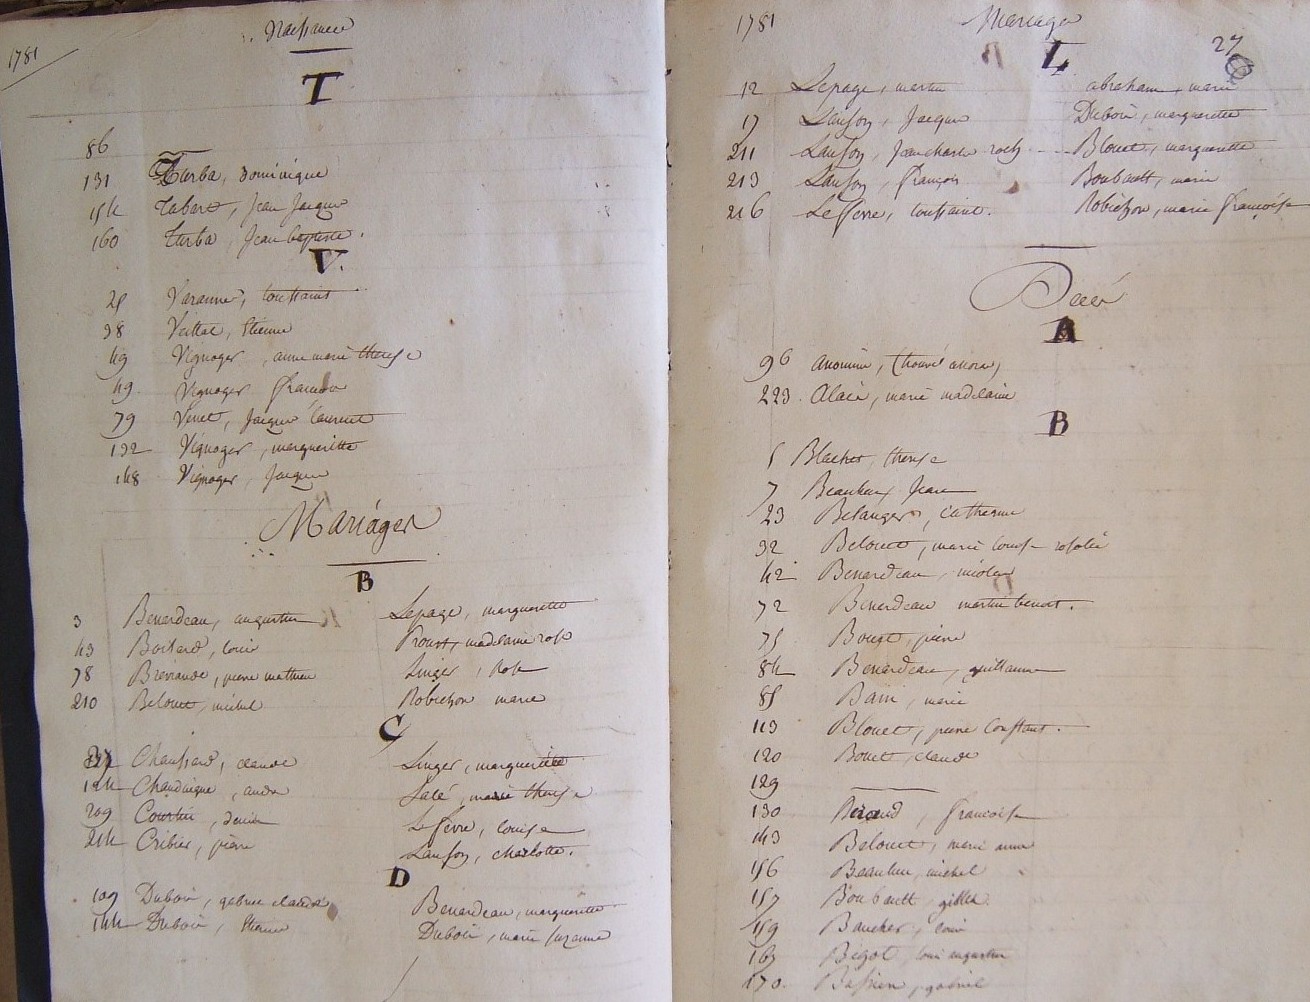 1781
Naissance
T
86
131 Turba, dominique
154 Tabart, Jean Jacque
160 Turba, Jean baptiste.
V.
25 Varanne, toussaint
38 Etienne
49 Vignoger, anne marie therese
49 Vignoger francois
79 Venet, Jacque Laurent
132 Vignoger, margueritte
148 Vignoger, Jacque
Mariages
B
3 Benardeau, augustin Lepage, margueritte
43 Boitard, louis Proust, madelaine rose
78 pierre mathieu Linger, Rose
210 Belouet, michel Robichon marie
C
Chaussard, claude Linger, margueritte
124 Chauvigne, andre Salé, marie therese
209 Courtin, denis Lefevre, louise
214 Cribier, pierre Lanson, charlotte.
D
109 Dubois, gabriel claude Benardeau, margueritte
144 Dubois, Etienne Dubois, marie suzanne
1781 Mariages
27
L
12 Lepage, martin abraham, marie
17 Lanson, Jacque Dubois, margueritte
211 Lanson, Jean charle roch - - Blouet, margueritte
213 Lanson, françois Boubault, marie
216 Lefevre, toussaint. Robichon, marie françoise
Décès
A
96 anonime, (trouvé
223. Alain, marie madelaine
B
5 Blachet, therese
7 Beaulieu, Jean
23 Belanger, Catherine
32 Belouet, marie louise rosalie
42 Benardeau, nicolas
72 Benardeau martin benoit.
75 pierre
84 Benardeau, guillaume
85 Bain, marie
113 Blouet, pierre Constant.
120 Bouet, claude
129
130 françoise
143 Belouet, marie anne
156 Beaulieu, michel
157 Boubault, gilles
159 Baucher, louis
163 Bigot, louis augustin
170. gabriel